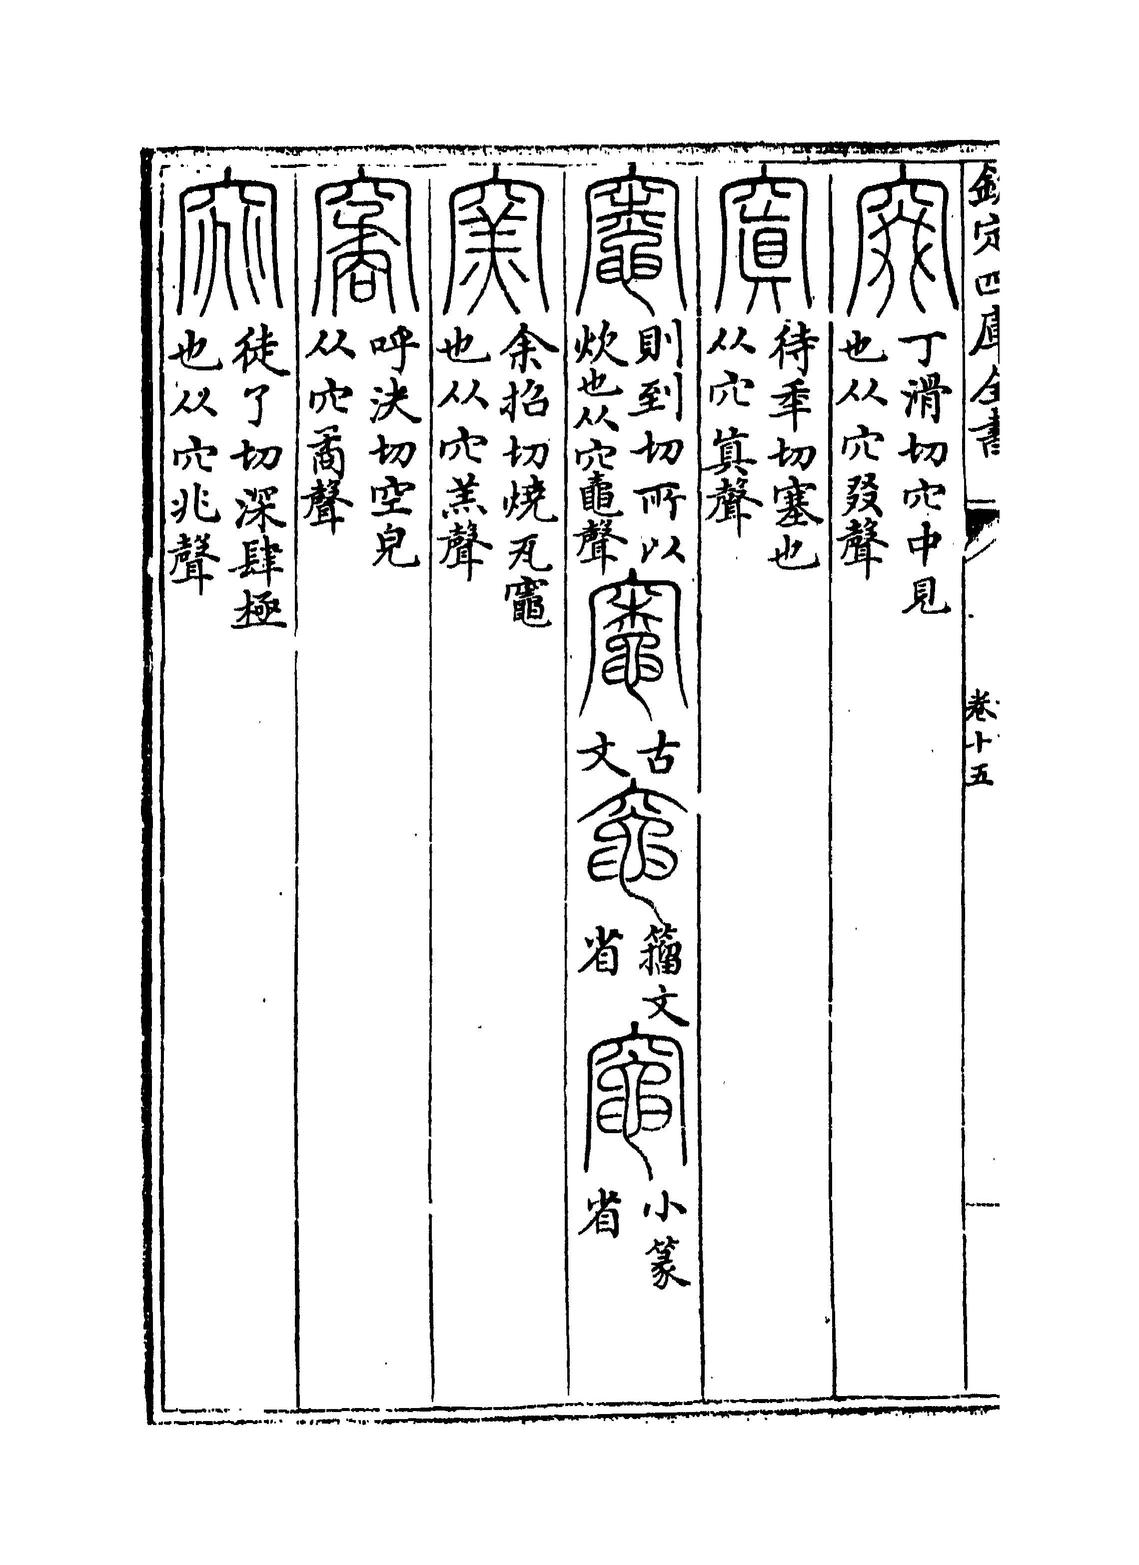 欽定四庫全書
卷十五
丁滑切穴中見
也从穴叕聲
窴
待季切塞也
从穴真聲
則到切所以
炊也从穴黽聲
古
文
籀文
省
小篆
省
窯
余招切燒瓦竈
也从穴羔聲
呼決切空皃
从穴矞聲
窕
徒了切深肆極
也从穴兆聲